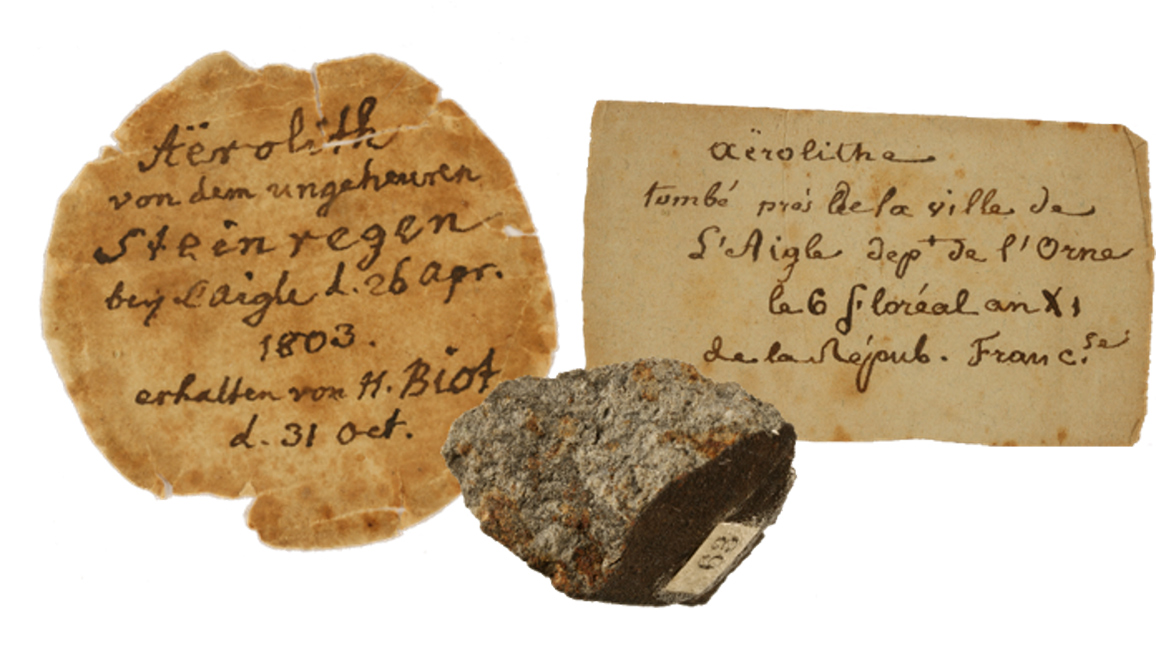 Aërolith
von dem ungeheuren
Steinregen
bey l'aigle d. 26 Apr.
1803.
erhalten von H. Biot
d. 31 Oct.
aërolithe
tombé près de la ville de
L'Aigle depᵗ de l'Orne
le 6 floréal an XI
de la Répub. Franc.se
63